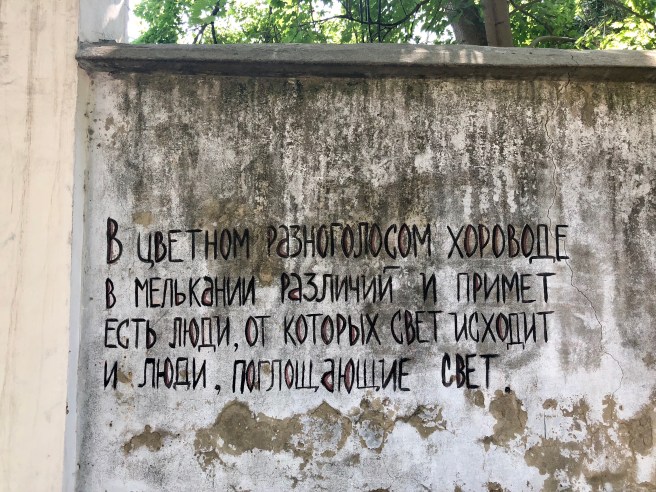 В ЦВЕТНОМ РАЗНОГОЛОСОМ ХОРОВОДЕ
В МЕЛЬКАНИИ РАЗЛИЧИЙ И ПРИМЕТ
ЕСТЬ ЛЮДИ, ОТ КОТОРЫХ СВЕТ ИСХОДИТ
И ЛЮДИ, ПОГЛОЩАЮЩИЕ СВЕТ.